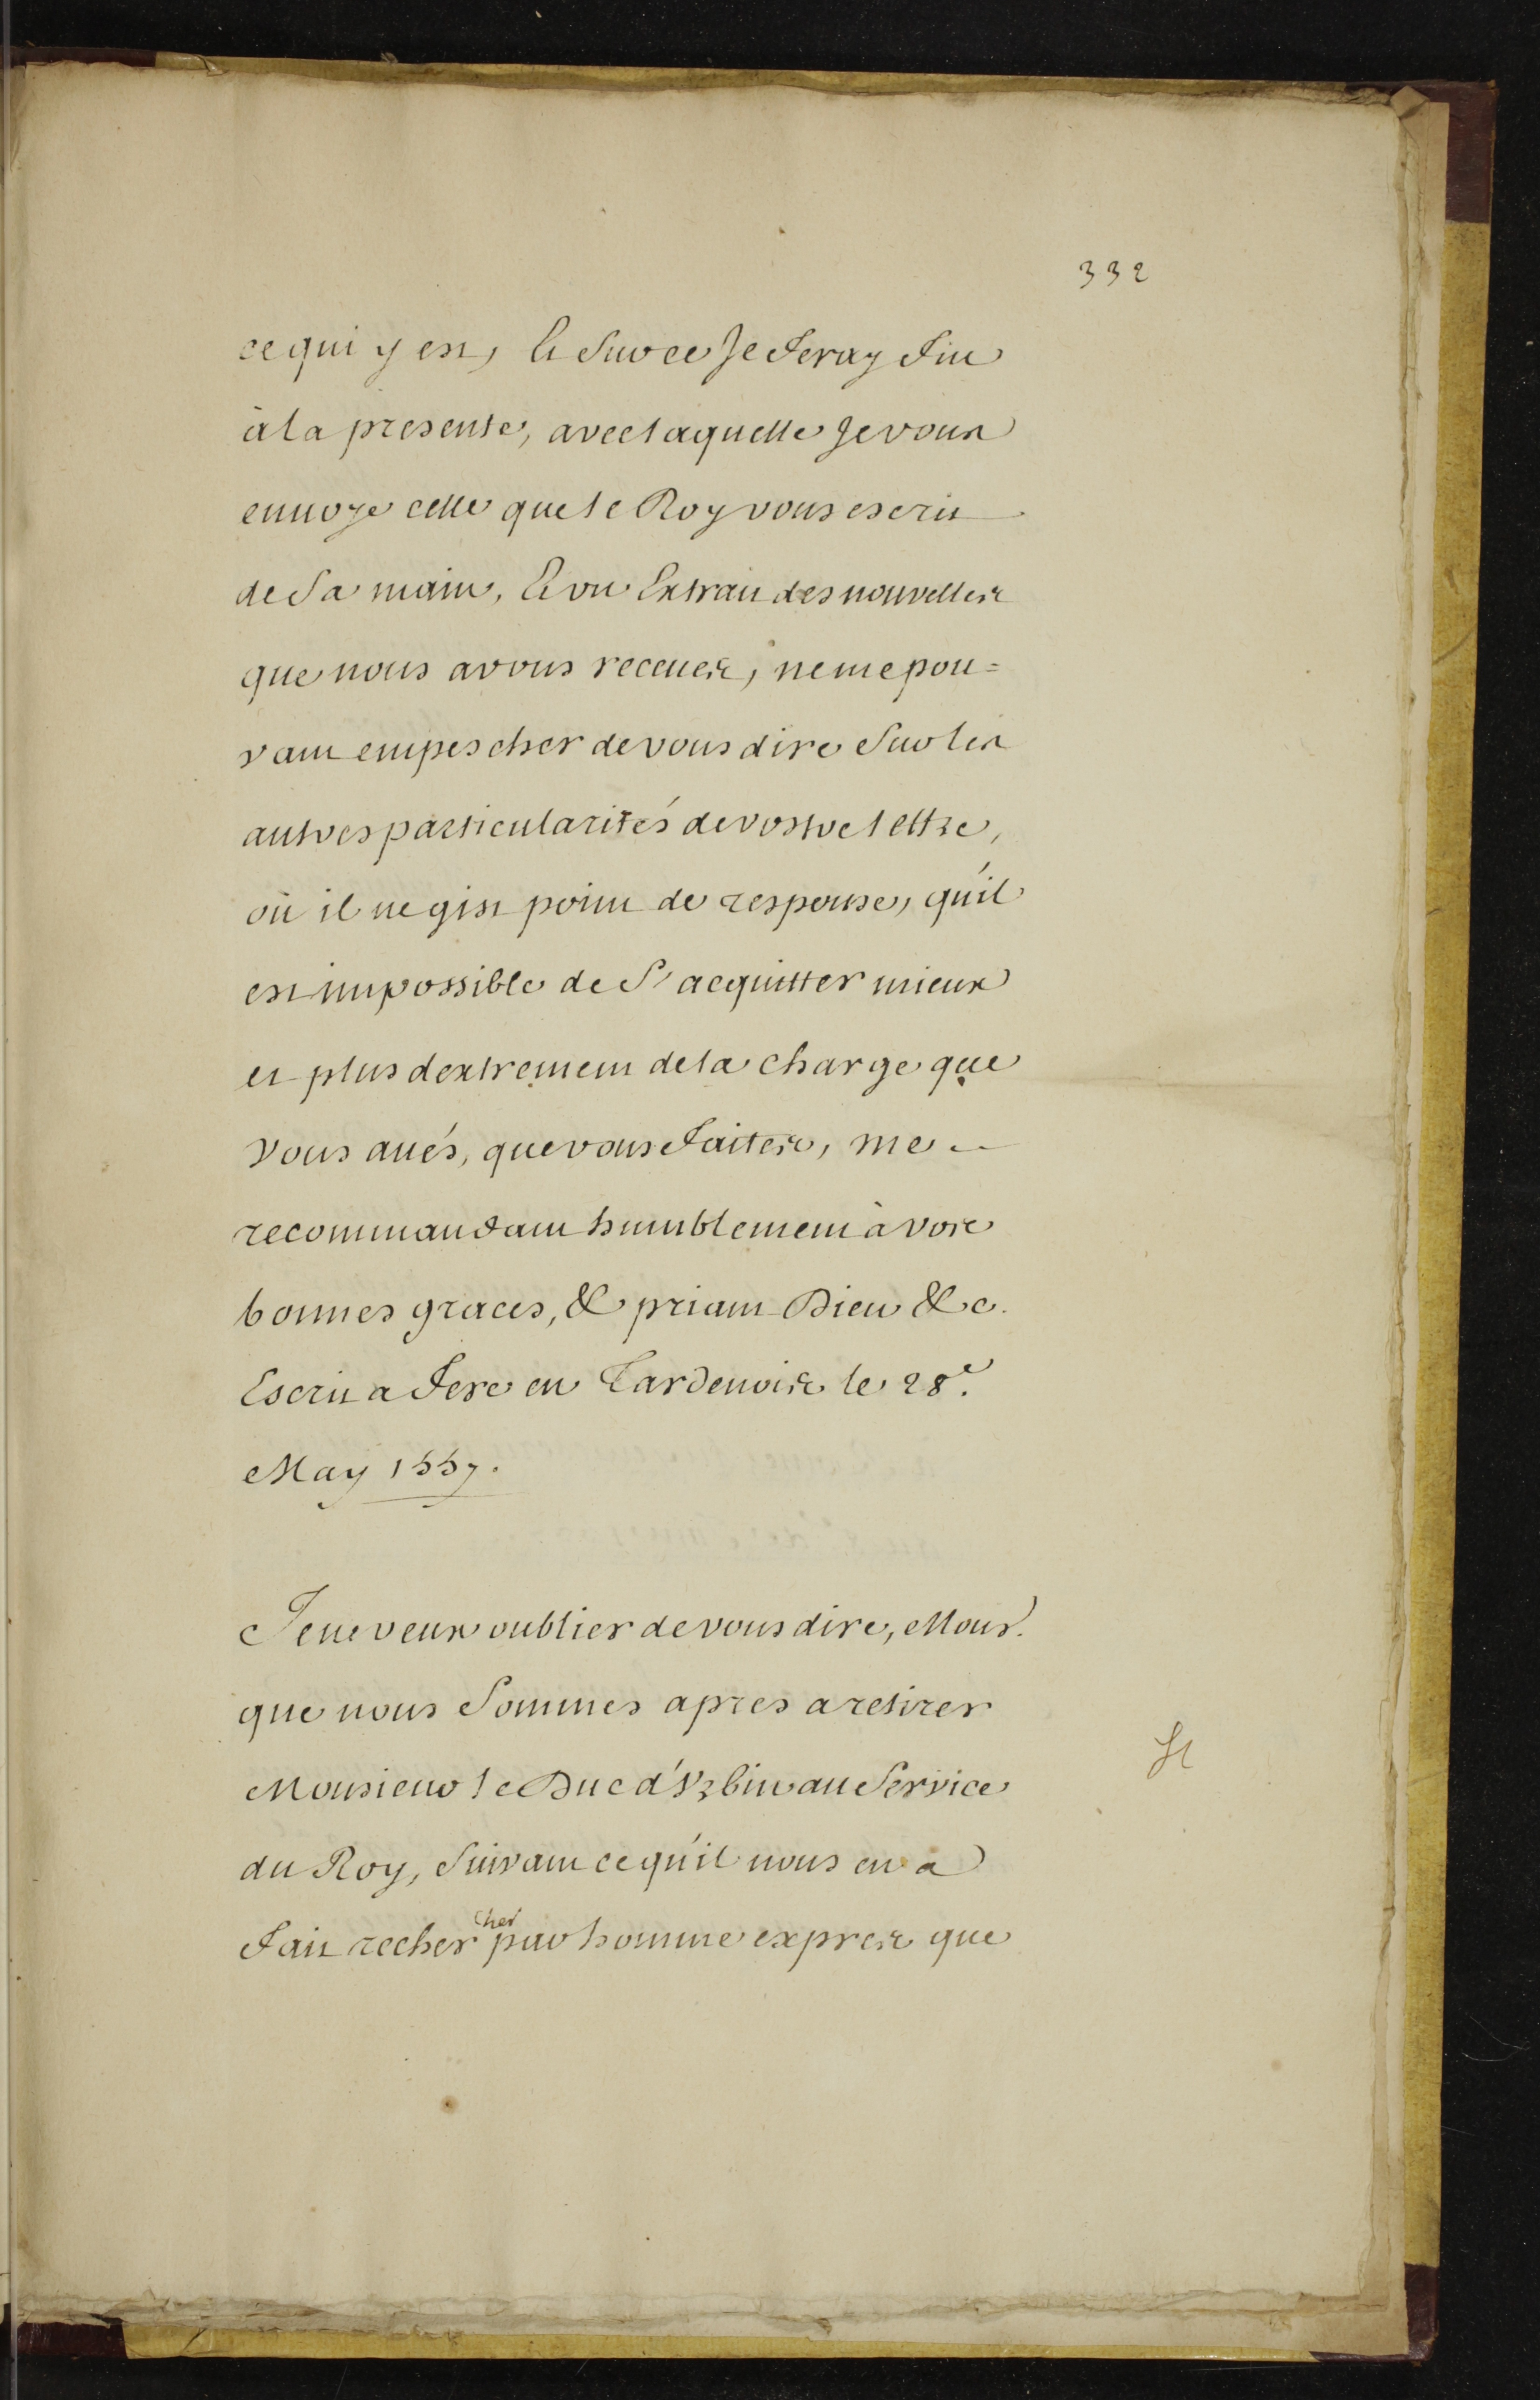 332
ce qui y est, Et Sur ce Je feray fin
à la presente, avec laquelle Je vous
envoye celle que le Roy vous escrit
de Sa main, Et un Extrait des nouvelles
que nous avons receues, ne me pou=
vant empescher de vous dire Sur les
autres particularités de vostre lettre,
où il ne gist point de response, qu'il
est impossible de S'acquitter mieux
et plus dextrement de la charge que
vous aués, que vous faites, me
recommandant humblement à vos
bonnes graces, & priant Dieu &c.
Escrit a Fere en Tardenois le 28.e
May 1557.
Je ne veux oublier de vous dire, Monsr.
que nous Sommes apres a retirer
Monsieur le Duc d'Vrbin au Service
du Roy, Suivant ce qu'il nous en a
cher
fait recher par homme expres que